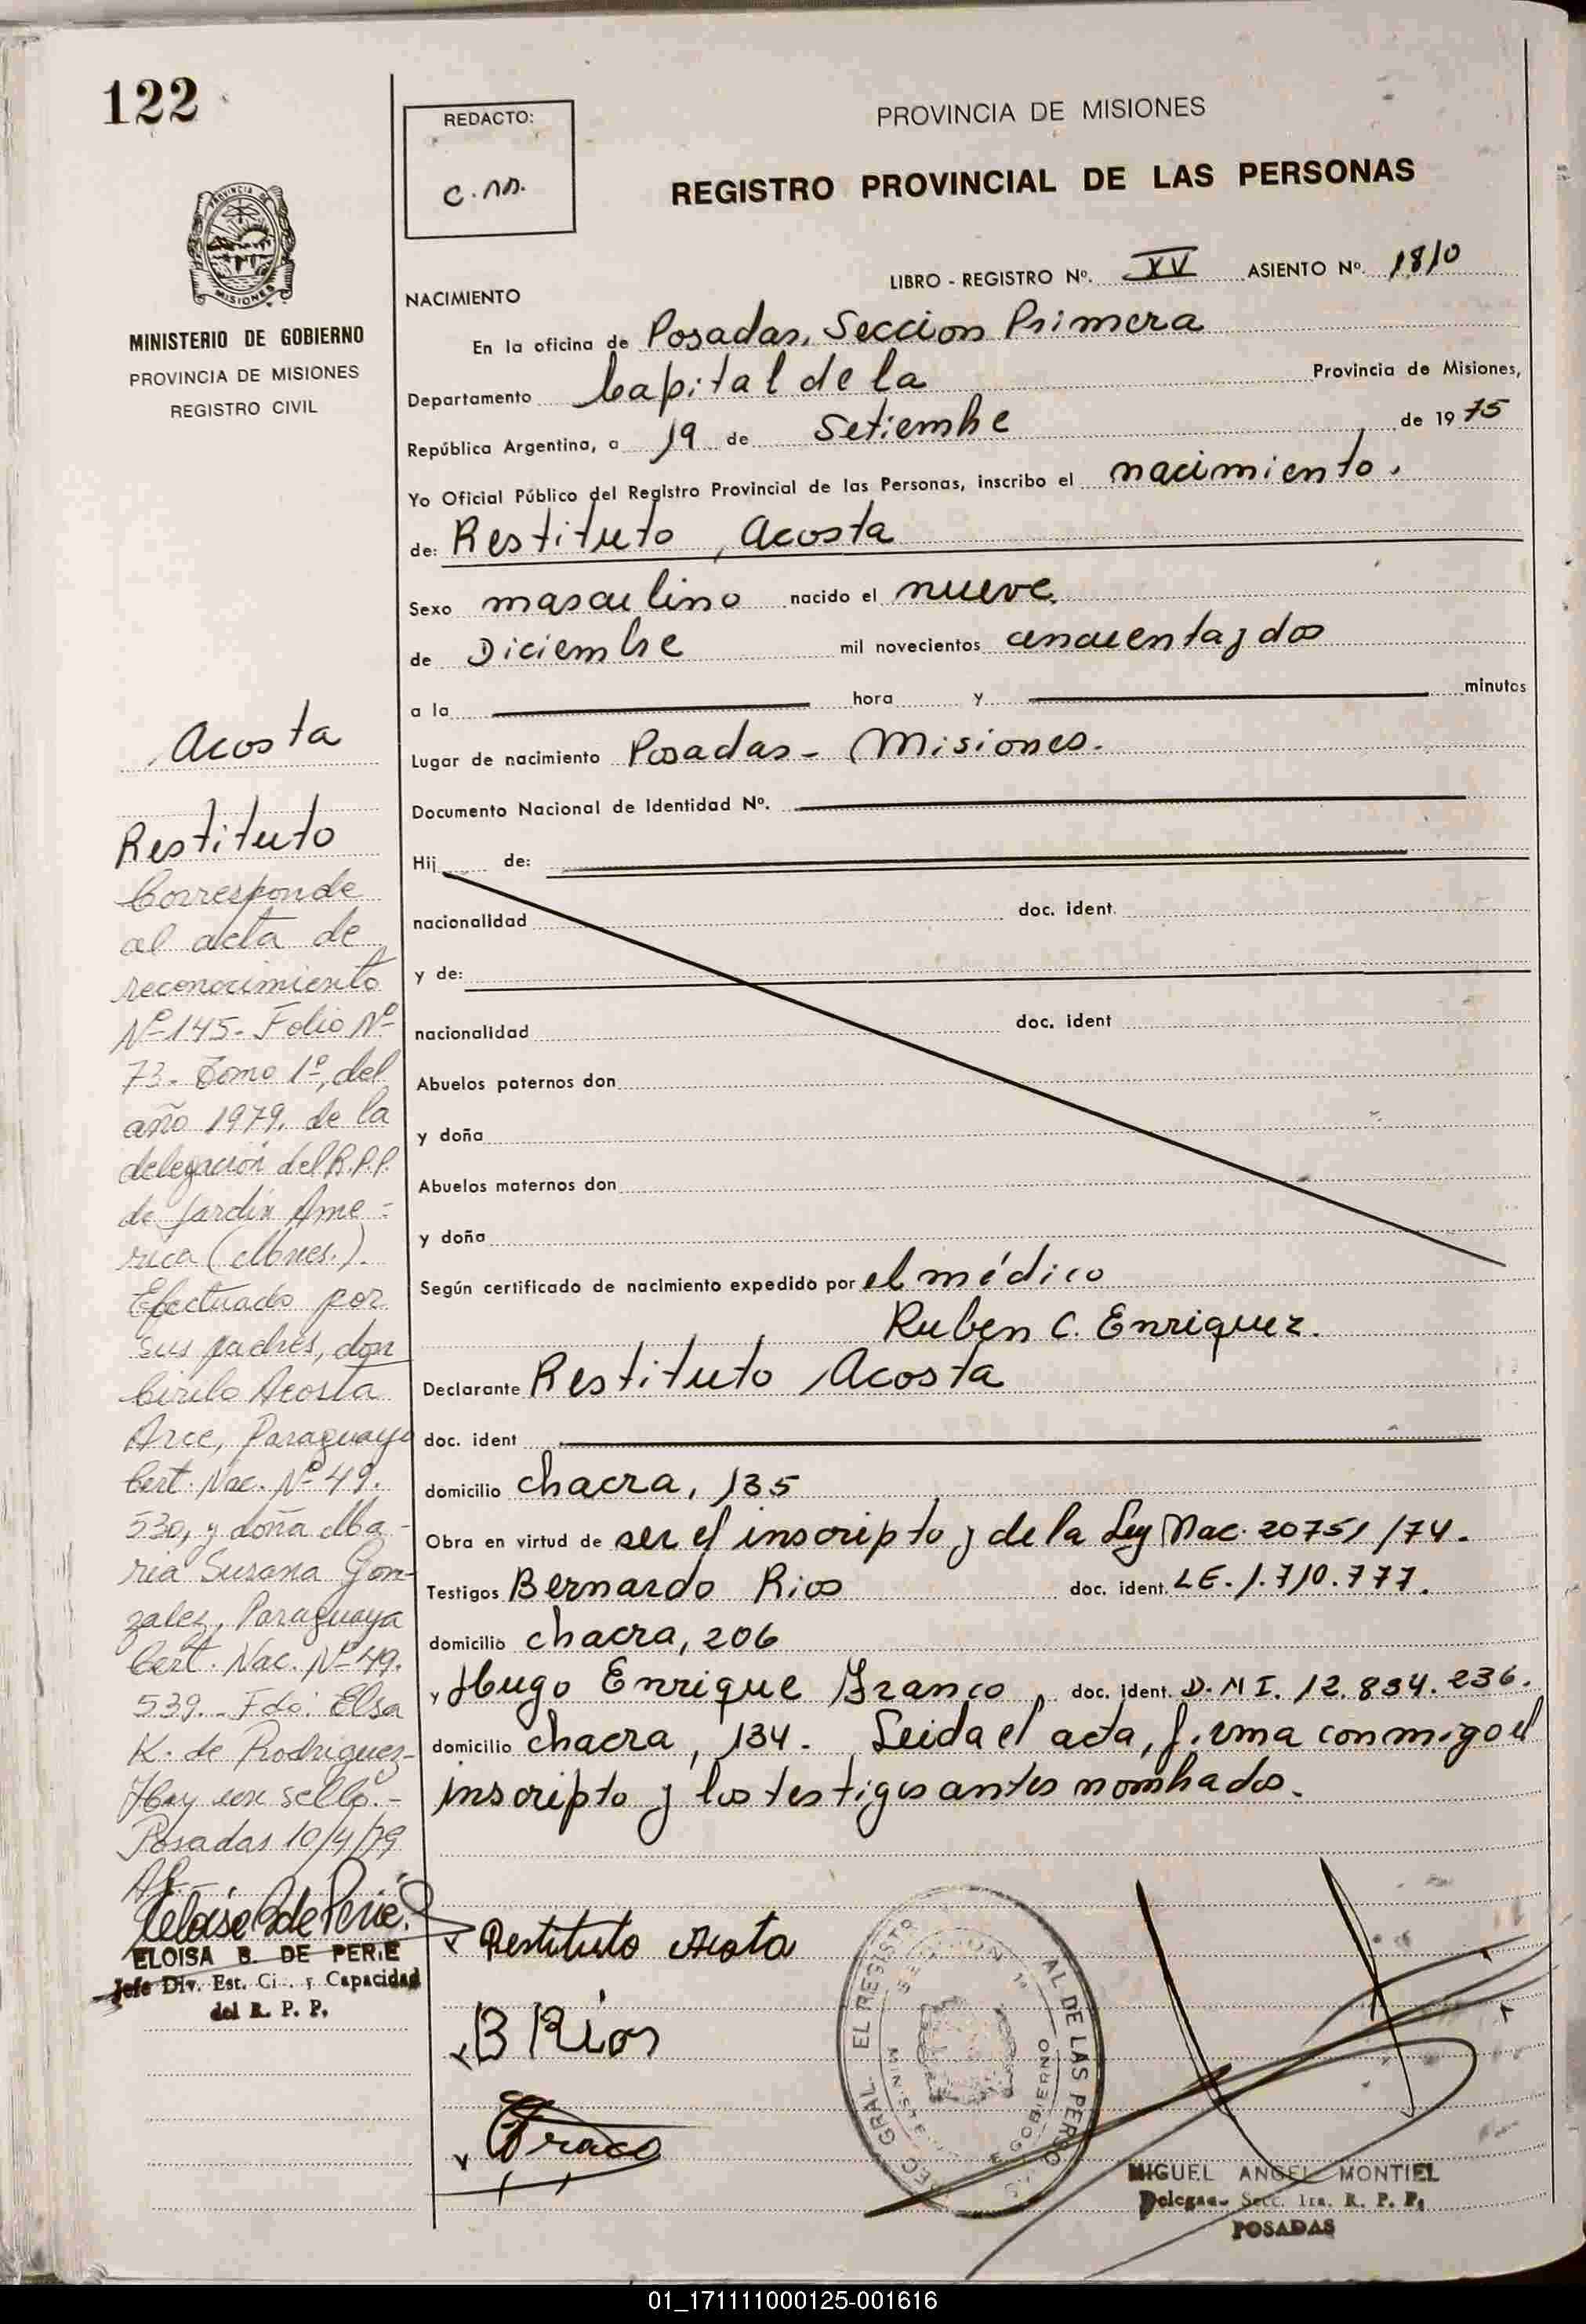 122
REDACTO:
c.m.
PROVINCIA DE MISIONES
REGISTRO PROVINCIAL DE LAS PERSONAS
LIBRO - REGISTRO Nº. XV ASIENTO Nº. 1810
PROVINCIA
MISIONES
MINISTERIO DE GOBIERNO
PROVINCIA DE MISIONES
REGISTRO CIVIL
NACIMIENTO
En la oficina de Posadas, Seccion Primera
Departamento Capital de la Provincia de Misiones,
República Argentina, a 19 de Setiembre de 19 75
Yo Oficial Público del Registro Provincial de las Personas, inscribo el nacimiento.
de: Restituto, Acosta
Sexo masculino nacido el nueve
de Diciembre mil novecientos cincuenta y dos
a la hora y minutos
Lugar de nacimiento Posadas - Misiones.
Documento Nacional de Identidad Nº.
Hij de:
nacionalidad doc. ident.
y de:
nacionalidad doc. ident
Abuelos paternos don
y doña
Abuelos maternos don
y doña
Según certificado de nacimiento expedido por el médico
Ruben C. Enriquez.
Declarante Restituto Acosta
doc. ident
domicilio chacra, 135
Obra en virtud de ser el inscripto y de la Ley Nac. 20751/74.
Testigos Bernardo Rios doc. ident. LE. 1.710.777.
domicilio chacra, 206
y Hugo Enrique Franco, doc. ident. D.N I. 12.834.236.
domicilio chacra, 134. Leida el acta, firma conmigo el
inscripto y los testigos antes nombrados.
Acosta
Restituto
Corresponde
al acta de
reconocimiento
Nº 145. Folio Nº
73. Tomo 1º, del
año 1979. de la
delegación del R.P.P.
de Jardín Amé-
rica (Mnes.).
Efectuado por
sus padres, don
Cirilo Acosta
Arce, Paraguayo
Cert. Nac. Nº 49.
530, y doña Ma-
ria Susana Gon-
zalez, Paraguaya
Cert. Nac. Nº 49.
539.. Fdo: Elsa
K. de Rodriguez-
Hay un sello.-
Posadas 10/4/79
Eloisa B de Perié
ELOISA B. DE PERIE
Jefe Div. Est. Ci.. y Capacidad
del R. P. P.
Restituto Acosta
B Rios
Franco
EL REGISTR AL DE LAS PERSO
SECCION 1ª
GOBIERNO
MIGUEL ANGEL MONTIEL
Delegado Secc. 1ra. R. P. P.
POSADAS
01_171111000125-001616